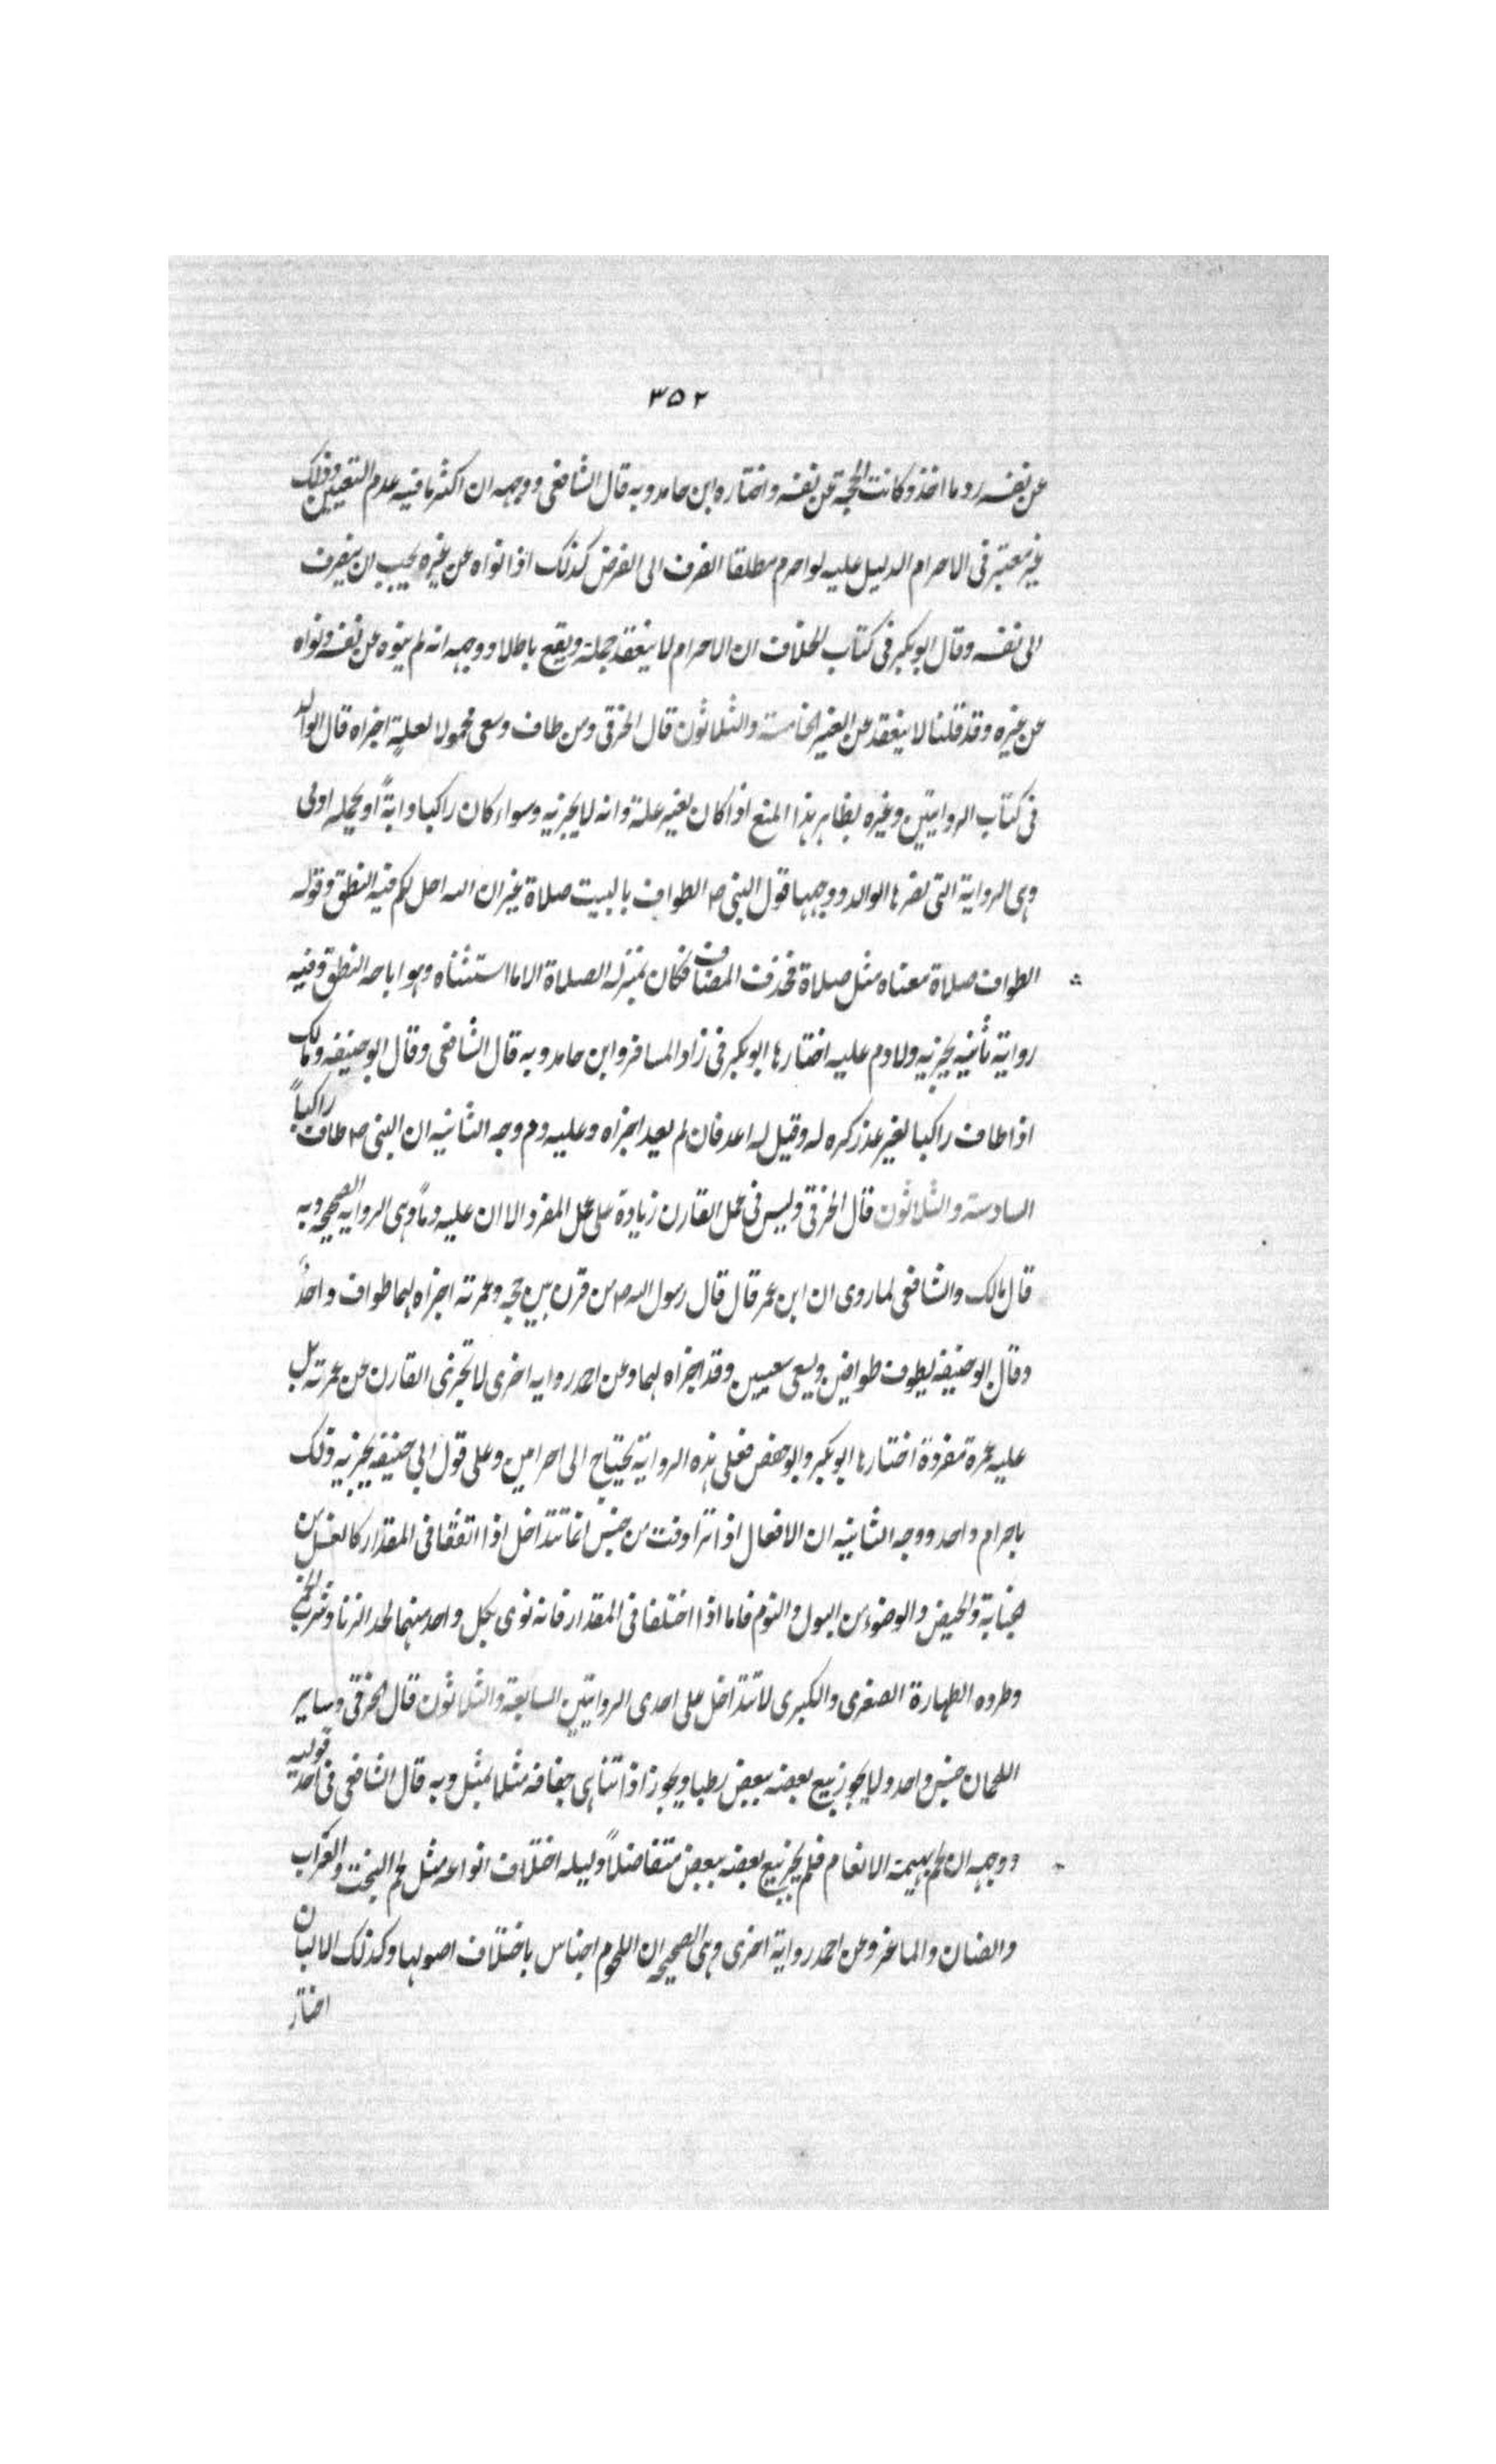 ٣٥٢
عن نفسه رد ما اخذ وكانت الحجة عن نفسه واختاره ابن حامد وبه قال الشافعى ووجهه ان اكثر ما فيه عدم التعيين وذلك
غير معتبر فى الاحرام الدليل عليه لو احرم مطلقا انصرف الى الفرض كذلك اذا نواه عن غيره يجب ان ينصرف
الى نفسه وقال ابو بكر فى كتاب الخلاف ان الاحرام لا ينعقد جملة ويقع باطلا ووجهه انه لم ينوه عن نفسه ونواه
عن غيره وقد قلنا لا ينعقد عن الغير الخامسة والثلاثون قال الخرقى ومن طاف وسعى محمولا لعلة اجزاه قال الوالد
فى كتاب الروايتين وغيره بظاهر هذا المنع اذا كان لغير علة وانه لا يجزيه وسواء كان راكبا دابةً او يحمله ادمى
وهى الرواية التى نصرها الوالد ووجهها قول النبى صم الطواف بالبيت صلاة غير ان الله احل لكم فيه النطق وقوله
الطواف صلاة معناه مثل صلاة فحذف المضاف فكان بمنزله الصلاة الا ما استثناه وهو اباحه النطق وفيه
رواية ثانية يجزيه ولا دم عليه اختارها ابو بكر فى زاد المسافر وابن حامد وبه قال الشافعى وقال ابو حنيفه ومالك
اذا طاف راكبا لغير عذر كره له وقيل له اعد فان لم يعد اجزاه وعليه دم وجه الثانيه ان النبى صم طاف راكباً
السادسة والثلاثون قال الخرقى وليس فى عمل القارن زيادة على عمل المفرد الا ان عليه دمًا وهى الروايه الصحيحه وبه
قال مالك والشافعى لما روى ان ابن عمر قال قال رسول الله صم من قرن بين حجه وعمرته اجزاه لهما طواف واحدً
وقال ابو حنيفه يطوف طوافين ويسعى سعيين وقد اجزاه لهما وعن احمد روايه اخرى لا تجزئى القارن عن عمرته بل
عليه عمرة مفردة اختارها ابو بكر وابو حفص فعلى هذه الرواية يحتاج الى احرامين وعلى قول ابى حنيفه يجزيه ذلك
باحرام واحد ووجه الثانيه ان الافعال اذا ترادفت من جنس انما تتداخل اذا اتفقا فى المقدار كالغسل من
الجنابة والحيض والوضوء من البول والنوم فاما اذا اختلفا فى المقدار فانه نوى بكل واحد منهما لحد الزنا وشرب الخمر
وطرده الطهارة الصغرى والكبرى لا تتداخل على احدى الروايتين السابعة والثلاثون قال الخرقى وساير
اللحمان جنس واحد ولا يجوز بيع بعضه ببعض رطبا ويجوز اذا تناهى جفافه مثلا بمثل وبه قال الشافعى فى احد قوليه
ووجهه ان لحم بهيمة الانعام فلم يجز بيع بعضه ببعض متفاضلاً دليله اختلاف انواعه مثل لحم البخت والعراب
والضان والماعز وعن احمد رواية اخرى وهى الصحيحه ان اللحوم اجناس باختلاف اصولها وكذلك الالبان
اختار